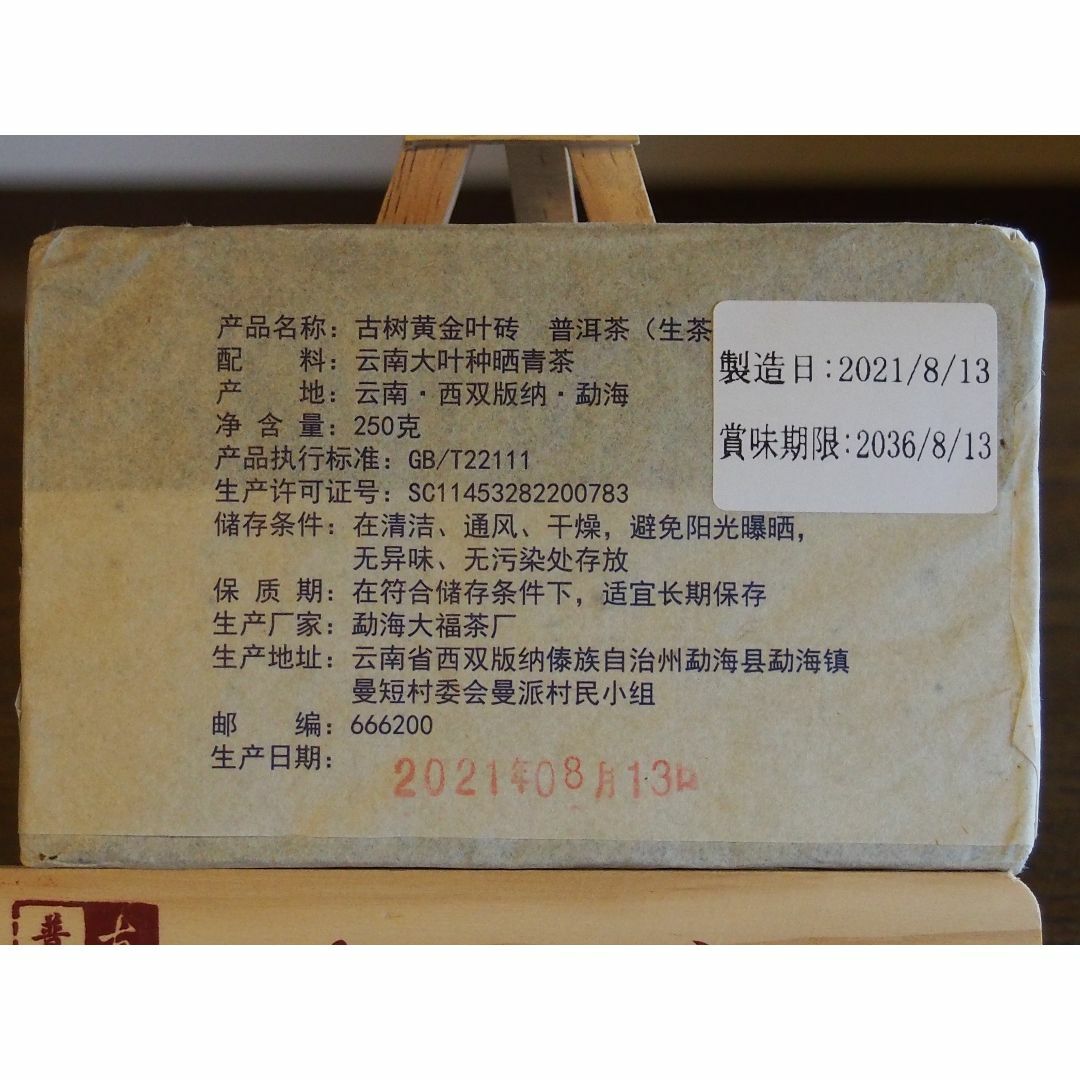 产品名称：古树黄金叶砖 普洱茶（生茶
配 料：云南大叶种晒青茶
产 地：云南·西双版纳·勐海
净 含 量：250克
产品执行标准：GB/T22111
生产许可证号：SC11453282200783
储存条件：在清洁、通风、干燥，避免阳光曝晒，
无异味、无污染处存放
保 质 期：在符合储存条件下，适宜长期保存
生产厂家：勐海大福茶厂
生产地址：云南省西双版纳傣族自治州勐海县勐海镇
曼短村委会曼派村民小组
邮 编：666200
生产日期：
2021年08月13日
製造日:2021/8/13
賞味期限:2036/8/13
普